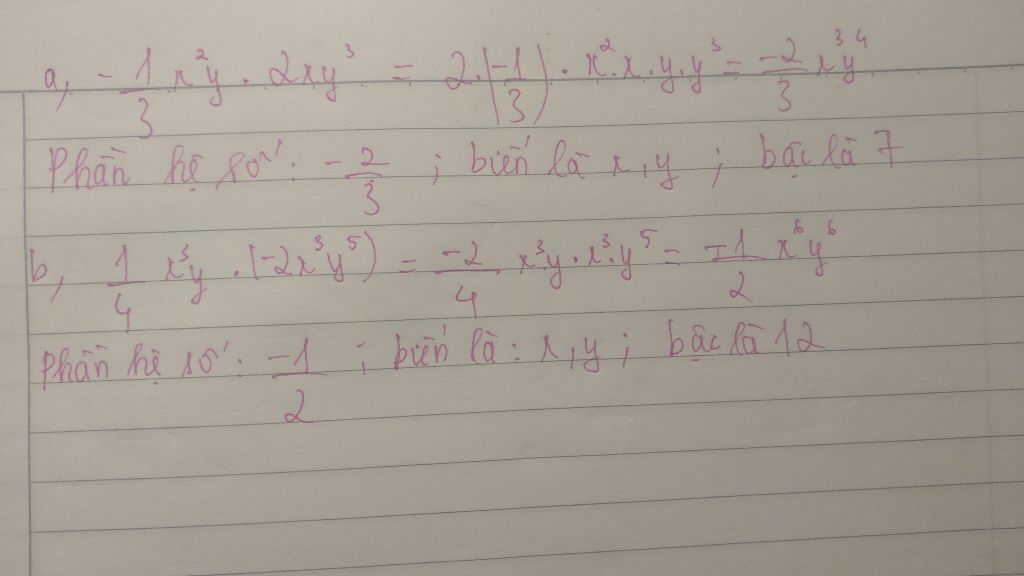 a, -1/3 x²y . 2xy³ = 2.(-1/3) . x².x.y.y³ = -2/3 x³y⁴
Phần hệ số: -2/3 ; biến là x,y ; bậc là 7
b, 1/4 x³y . (-2x³y⁵) = -2/4 x³.y.x³.y⁵ = -1/2 x⁶y⁶
Phần hệ số: -1/2 ; biến là: x,y ; bậc là 12